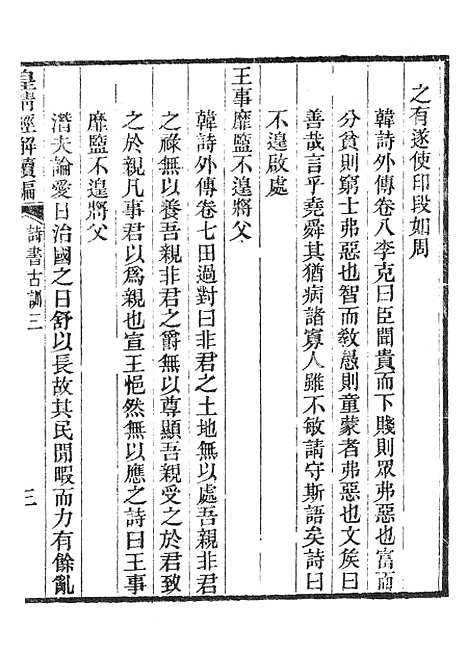 之有遂使印段如周
韓詩外傳卷八李克曰臣聞貴而下賤則眾弗惡也富而
分貧則窮士弗惡也智而敎愚則童蒙者弗惡也文矦曰
善哉言乎堯舜其猶病諸寡人雖不敏請守斯語矣詩曰
不遑啟處
王事靡盬不遑將父
韓詩外傳卷七田過對曰非君之土地無以處吾親非君
之祿無以養吾親非君之爵無以尊顯吾親受之於君致
之於親凡事君以爲親也宣王悒然無以應之詩曰王事
靡盬不遑將父
潛夫論愛日治國之日舒以長故其民閒暇而力有餘亂
皇清經解續編
詩書古訓三
三